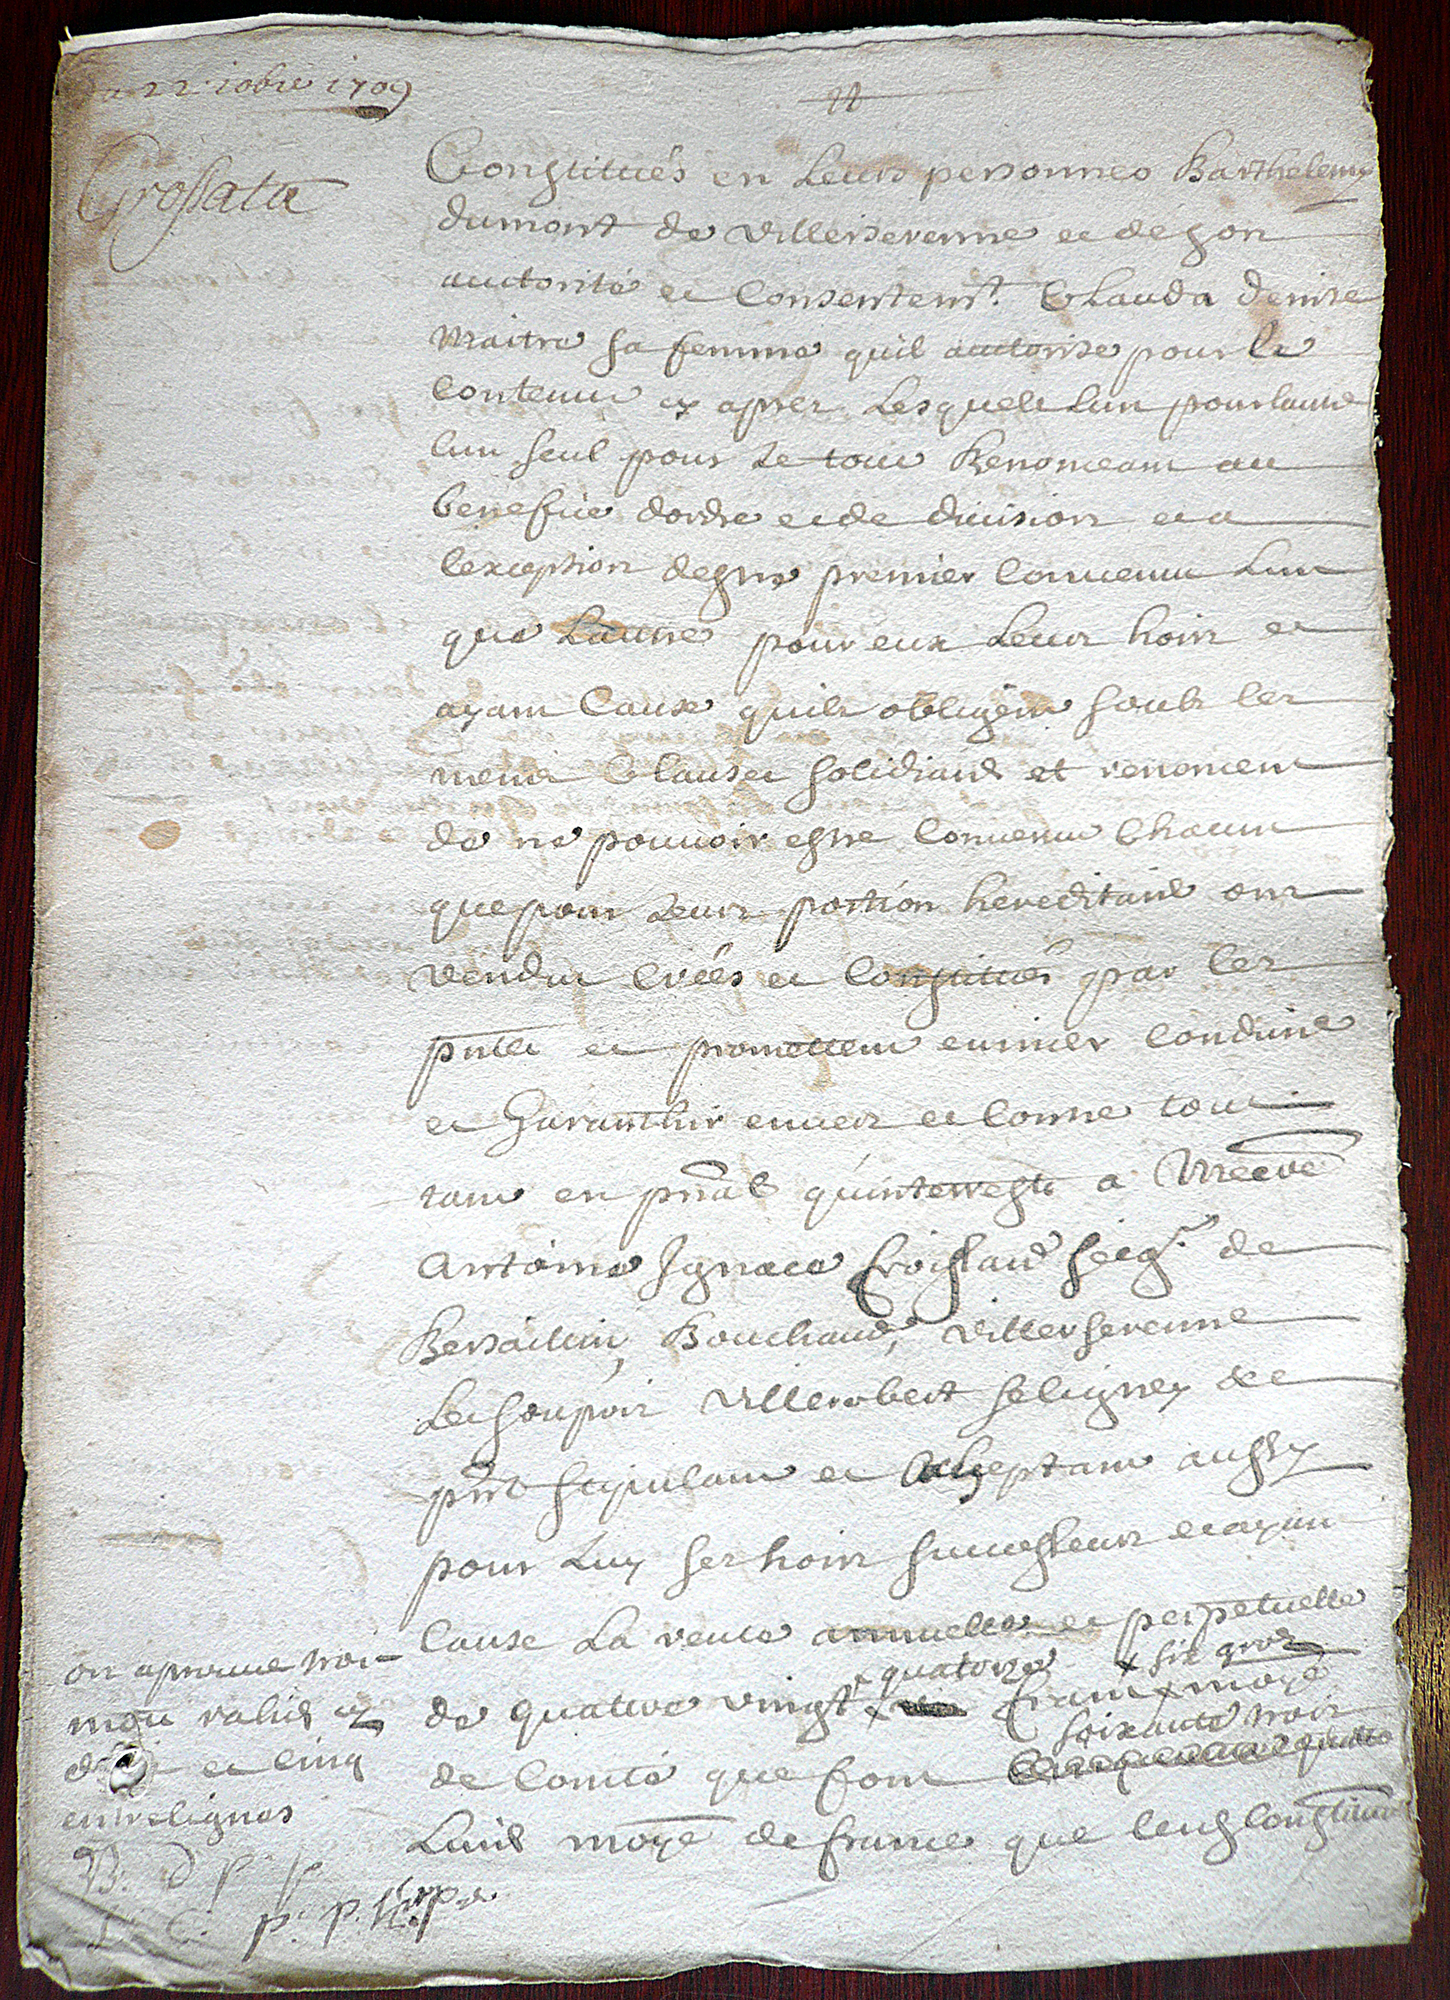 22 10bre 1709
Grossata
Constitués en Leurs personnes Barthelemy
dumont de villerserenne et de son
autorité et Consentemt. Clauda denise
Maitre sa femme quil autorise pour le
Contenu cy apres Lesquels Lun pour lautre
lun seul pour Le tout Renonceant au
benefice dordre et de division et a
lexception destre premier Convenu Lun
que Lautre pour eux Leurs hoirs et
ayant Cause quils obligent soubs les
mesmes Clauses solidiaires et renoncent
de ne pouvoir estre Convenu Chacun
que pour Leurs portion hereditaire ont
vendu Créés et Constitués par les
pntes et promettent
et Garanthir envers et Contre tous
tant en pnal quinterrests a
Antoine Ignace Froissard Seigr. de
Bersaillin, Bouchaud, Villerserenne
Le Soupois Villerobert Seligney &c
pnt stipulant et Acceptant aussy
pour Luy ses hoirs successeurs et ayant
Cause La rente annuelle et perpetuelle
quatorze six gros
de quatre vingt franc monoye
soixante trois
de Comté que font
Livres monoye de france que lesd Constitués
on aprouve trois
mots raliés cy
et cinq
entrelignes
B. d
L. C. p. p.